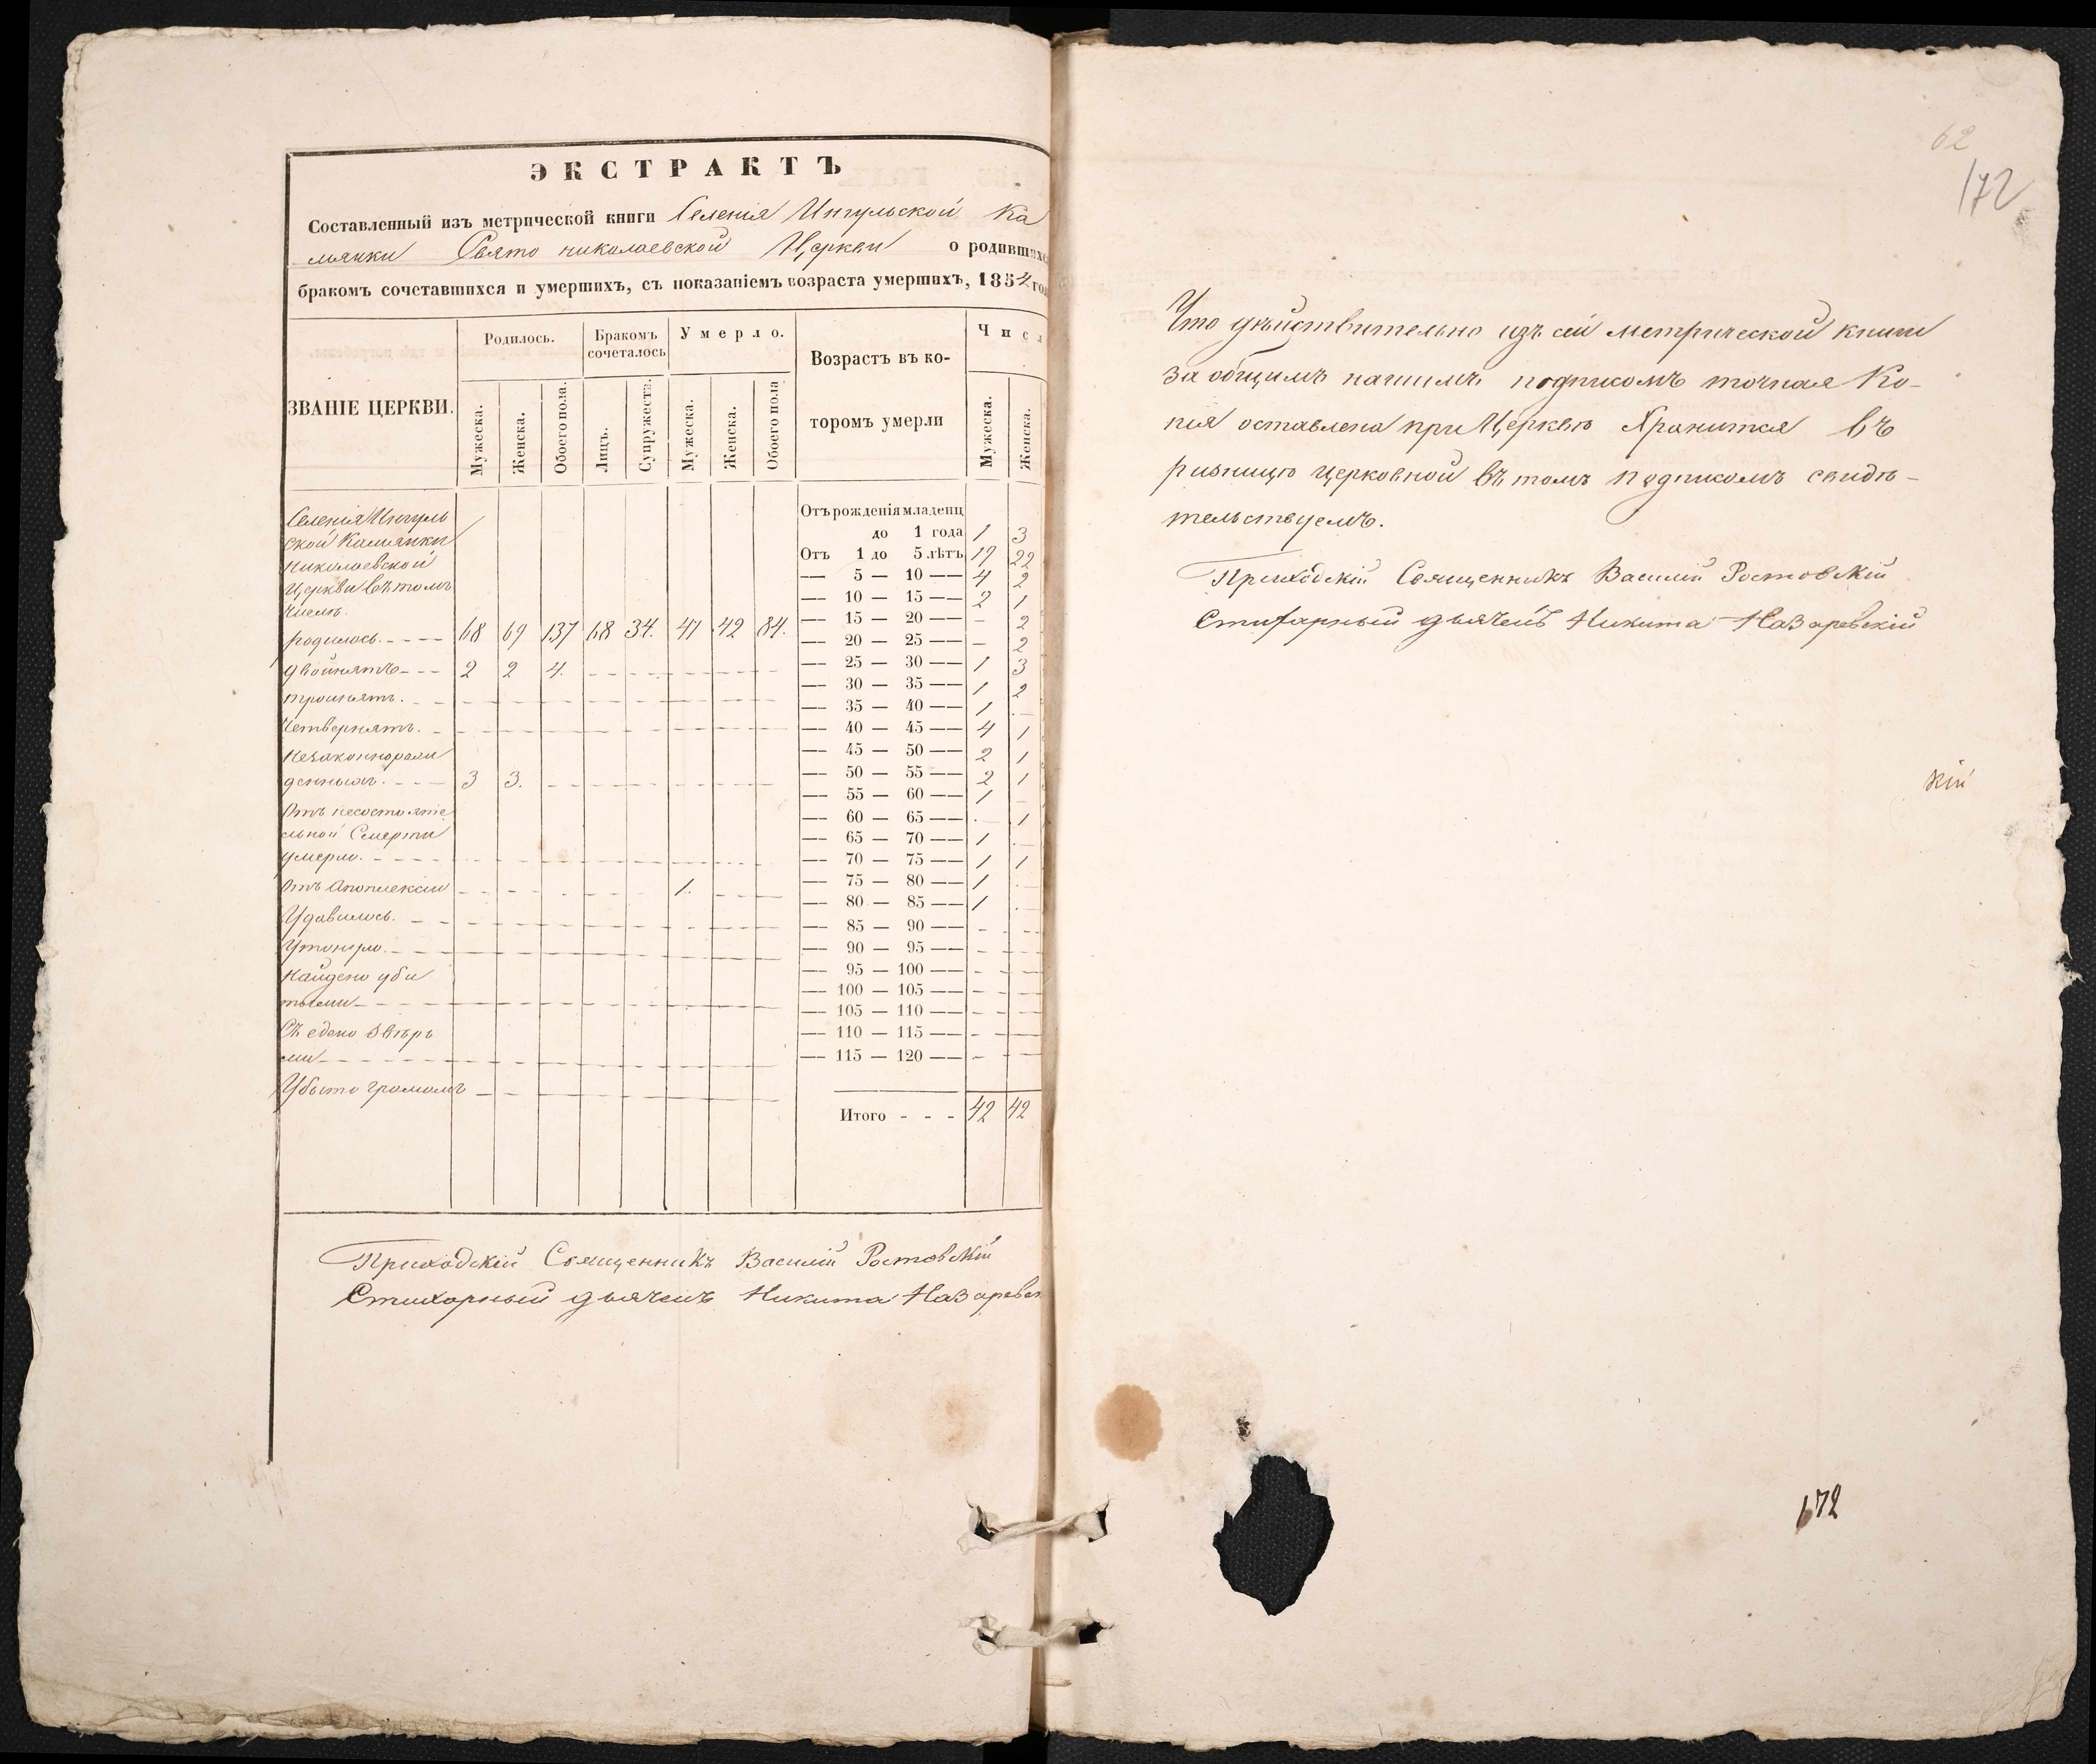 ЭКСТРАКТЪ
Составленный изъ метрической книги Селенія Ингульской Ка
мянки Свято николаевской Церкви о родившихс
бракомъ сочетавшихся и умершихъ, съ показаніемъ возраста умершихъ, 1854 го
ЗВАНІЕ ЦЕРКВИ.
Родилось.
Бракомъ сочеталось
Умерло.
Возрастъ въ ко-
торомъ умерли
Числ
Мужеска. Женска. Обоего пола. Лицъ. Супружеств. Мужеска. Женска. Обоего пола Мужеска. Женска.
Селенія Ингуль
ской Камянки
Николаевской
Церкви въ томъ
числѣ.
родилось. 68 69 137 68 34. 41 42 84.
двойнятъ 2 2 4.
тройнятъ.
Четвернятъ.
Незаконнорож
денныхъ. 3 3.
Отъ несостояте
льной Смерти
умерло.
Отъ Апоплексіи 1.
Удавилось.
Утонуло.
Найдено уби
тыми
Съедено Звѣрь
ми
Убыто громомъ
Отъ рожденія младенц
до 1 года 1 3
Отъ 1 до 5 лѣтъ 17 22
— 5 — 10 — — 4 2
— 10 — 15 — — 2 1
— 15 — 20 — — - 2
— 20 — 25 — — - 2
— 25 — 30 — — 1 3
— 30 — 35 — — 1 2
— 35 — 40 — — 1 -
— 40 — 45 — — 4 1
— 45 — 50 — — 2 1
— 50 — 55 — — 2 1
— 55 — 60 — — 1 -
— 60 — 65 — — - 1
— 65 — 70 — — 1 -
— 70 — 75 — — 1 1
— 75 — 80 — — 1 -
— 80 — 85 — — 1 -
— 85 — 90 — — - -
— 90 — 95 — — - -
— 95 — 100 — — - -
— 100 — 105 — — - -
— 105 — 110 — — - -
— 110 — 115 — — - -
— 115 — 120 — — - -
Итого - - - 42 42
Приходскій Священникъ Василій Ростовскій
Стихарный дьячекъ Никита Назаревс
62
172
Что дѣйствительно изъ сей метрической книги
за общимъ нашимъ подписомъ точная Ко-
пія оставлена при Церквѣ Хранится въ
ризницѣ церковной въ томъ подписомъ свидѣ-
тельствуемъ.
Приходскій Священникъ Василій Ростовскій
Стихарный дьячекъ Никита Назаревскій
кій
172